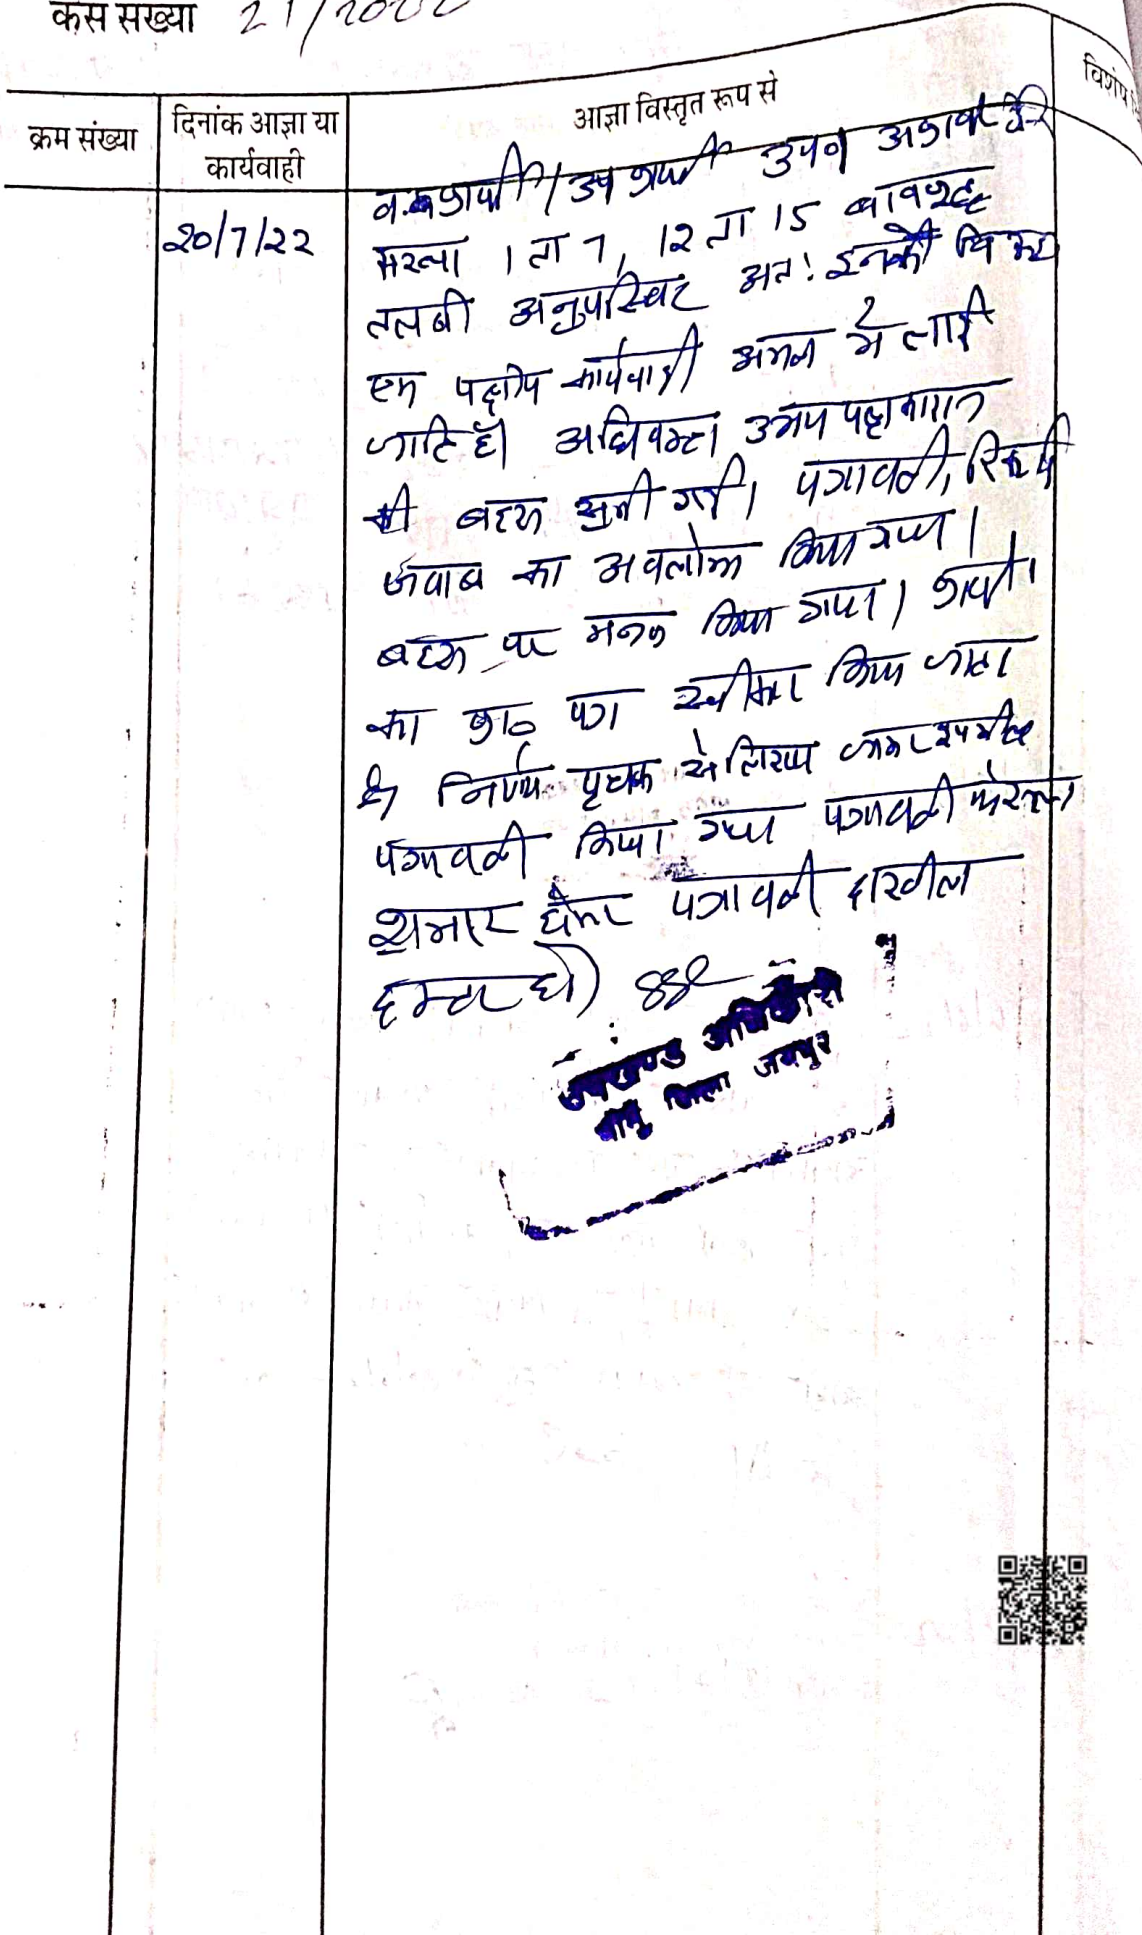 केस संख्या 21/2022
क्रम संख्या
दिनांक आज्ञा या
कार्यवाही
आज्ञा विस्तृत रूप से
विशेष
20/7/22
व. प्रार्थी / अप्रार्थी उप0 अप्रार्थी
संख्या 1 ता 7, 12 ता 15 बावजूद
तलबी अनुपस्थित अत: इनके विरूद्ध
एक पक्षीय कार्यवाही अमल में लाई
जाति है। अधिवक्ता उभय पक्षकारान
की बहस सुनी गई। पत्रावली,
जवाब का अवलोकन किया गया।
बहस पर मनन किया गया। प्रार्थी
का प्रा0 पत्र स्वीकार किया जाता
है निर्णय पृथक से लिखा जाकर शामील
पत्रावली किया गया पत्रावली फैसल
शुमार होकर पत्रावली दाखील
दफ्तर हो।
उपखण्ड अधिकारी
जिला जयपुर